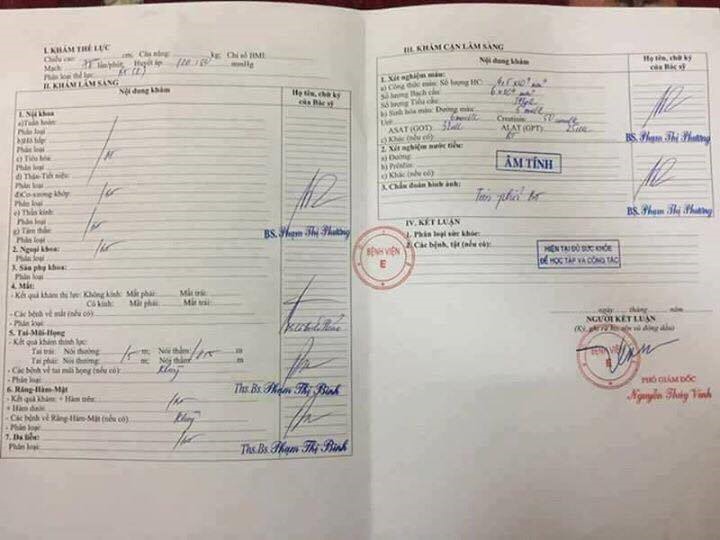 I. KHÁM THỂ LỰC
Chiều cao: cm; Cân nặng: kg; Chỉ số BMI:
Mạch: 75 lần/phút; Huyết áp: mmHg
Phân loại thể lực:
II. KHÁM LÂM SÀNG
Nội dung khám
Họ tên, chữ ký của Bác sỹ
1. Nội khoa
a) Tuần hoàn:
Phân loại
b) Hô hấp:
Phân loại
c) Tiêu hóa:
Phân loại
d) Thận-Tiết niệu:
Phân loại
đ) Cơ-xương khớp:
Phân loại
e) Thần kinh:
Phân loại
g) Tâm thần:
Phân loại
BS. Phạm Thị Phương
2. Ngoại khoa:
Phân loại
3. Sản phụ khoa:
Phân loại
4. Mắt:
- Kết quả khám thị lực: Không kính: Mắt phải: Mắt trái:
Có kính: Mắt phải: Mắt trái:
- Các bệnh về mắt (nếu có):
- Phân loại:
5. Tai-Mũi-Họng
- Kết quả khám thính lực:
Tai trái: Nói thường: 5 m; Nói thầm: 0,5 m
Tai phải: Nói thường: m; Nói thầm: m
- Các bệnh về tai mũi họng (nếu có): Không
- Phân loại:
Ths.Bs. Phạm Thị Bình
6. Răng-Hàm-Mặt
- Kết quả khám: + Hàm trên:
+ Hàm dưới:
- Các bệnh về Răng-Hàm-Mặt (nếu có) Không
- Phân loại:
7. Da liễu:
Phân loại:
Ths.Bs. Phạm Thị Bình
III. KHÁM CẬN LÂM SÀNG
Nội dung khám
Họ tên, chữ ký của Bác sỹ
1. Xét nghiệm máu:
a) Công thức máu: Số lượng HC:
Số lượng Bạch cầu:
Số lượng Tiểu cầu:
b) Sinh hóa máu: Đường máu:
Urê: Creatinin:
ASAT (GOT): ALAT (GPT):
c) Khác (nếu có):
BS. Phạm Thị Phương
2. Xét nghiệm nước tiểu:
a) Đường:
b) Prôtêin:
c) Khác (nếu có)
ÂM TÍNH
3. Chẩn đoán hình ảnh:
Tim phổi bt
BS. Phạm Thị Phương
IV. KẾT LUẬN
1. Phân loại sức khỏe:
2. Các bệnh, tật (nếu có):
HIỆN TẠI ĐỦ SỨC KHỎE
ĐỂ HỌC TẬP VÀ CÔNG TÁC
BỆNH VIỆN
E
ngày tháng năm
NGƯỜI KẾT LUẬN
(Ký, ghi rõ họ, tên và đóng dấu)
BỆNH VIỆN
E
PHÓ GIÁM ĐỐC
Nguyễn Thúy Vinh